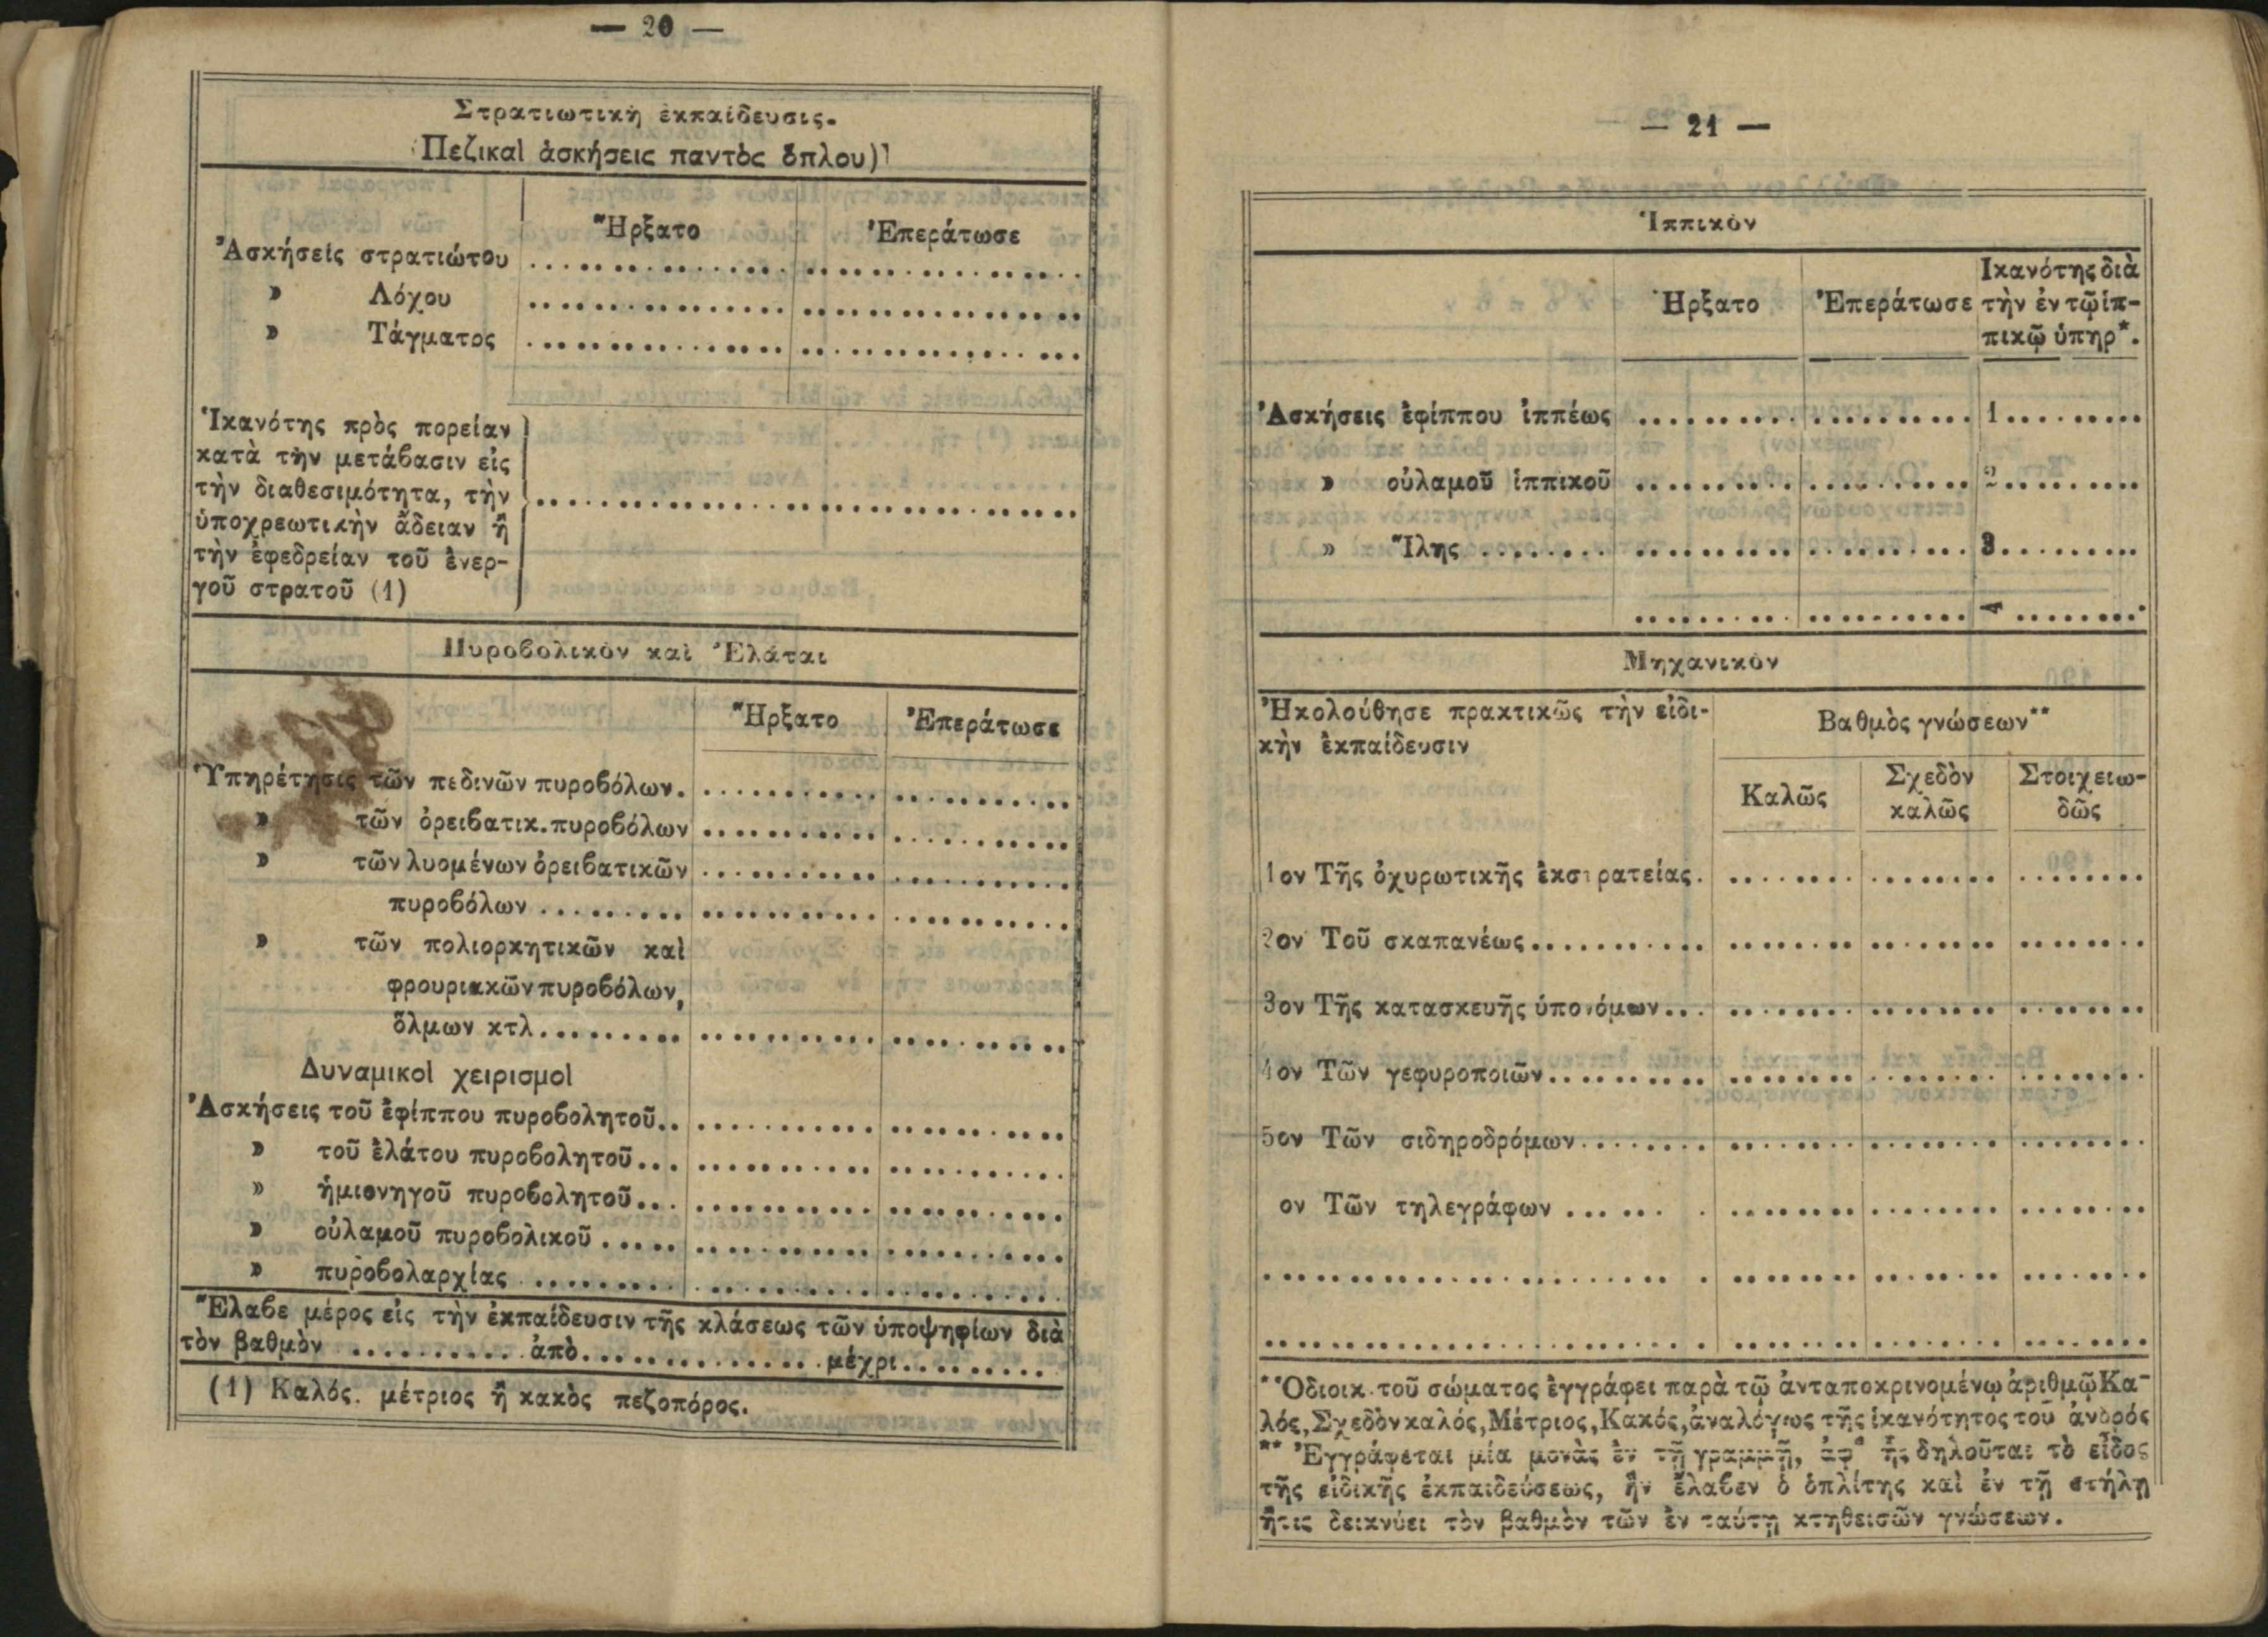 — 20 —
Στρατιωτικὴ ἐκπαίδευσις.
(Πεζικαὶ ἀσκήσεις παντὸς ὅπλου)1
Ἤρξατο Ἐπεράτωσε
Ἀσκήσεις στρατιώτου ........................
» Λόχου ........................
» Τάγματος ........................
Ἱκανότης πρὸς πορείαν
κατὰ τὴν μετάβασιν εἰς
τὴν διαθεσιμότητα, τὴν ........................
ὑποχρεωτικὴν ἄδειαν ἢ
τὴν ἐφεδρείαν τοῦ ἐνερ-
γοῦ στρατοῦ (1)
Πυροβολικὸν καὶ Ἐλάται
Ἤρξατο Ἐπεράτωσε
Ὑπηρέτησις τῶν πεδινῶν πυροβόλων. ....................
» τῶν ὀρειβατικ. πυροβόλων ....................
» τῶν λυομένων ὀρειβατικῶν ....................
πυροβόλων ....................
» τῶν πολιορκητικῶν καὶ
φρουριακῶν πυροβόλων,
ὅλμων κτλ ....................
Δυναμικοὶ χειρισμοὶ
Ἀσκήσεις τοῦ ἐφίππου πυροβολητοῦ ....................
» τοῦ ἐλάτου πυροβολητοῦ ....................
» ἡμιονηγοῦ πυροβολητοῦ ....................
» οὐλαμοῦ πυροβολικοῦ ....................
» πυροβολαρχίας ....................
Ἔλαβε μέρος εἰς τὴν ἐκπαίδευσιν τῆς κλάσεως τῶν ὑποψηφίων διὰ
τὸν βαθμὸν .......... ἀπὸ .............. μέχρι .........
(1) Καλός. μέτριος ἢ κακὸς πεζοπόρος.
— 21 —
Ἱππικὸν
Ἤρξατο Ἐπεράτωσε Ἱκανότης διὰ
τὴν ἐν τῷ ἱπ-
πικῷ ὑπηρ*.
Ἀσκήσεις ἐφίππου ἱππέως .................... 1.........
» οὐλαμοῦ ἱππικοῦ .................... 2.........
» Ἴλης .................... 3.........
.................... 4.........
Μηχανικὸν
Ἠκολούθησε πρακτικῶς τὴν εἰδι-
κὴν ἐκπαίδευσιν
Βαθμὸς γνώσεων**
Καλῶς Σχεδὸν καλῶς Στοιχειω-
δῶς
1ον Τῆς ὀχυρωτικῆς ἐκστρατείας. ........................
2ον Τοῦ σκαπανέως ........................
3ον Τῆς κατασκευῆς ὑπονόμων ........................
4ον Τῶν γεφυροποιῶν ........................
5ον Τῶν σιδηροδρόμων ........................
ον Τῶν τηλεγράφων ........................
........................
........................
* Ὁ διοικ. τοῦ σώματος ἐγγράφει παρὰ τῷ ἀνταποκρινομένῳ ἀριθμῷ Κα-
λός, Σχεδὸν καλός, Μέτριος, Κακός, ἀναλόγως τῆς ἱκανότητος τοῦ ἀνδρός
** Ἐγγράφεται μία μονὰς ἐν τῇ γραμμῇ, ἀφ' ἧς δηλοῦται τὸ εἶδος
τῆς εἰδικῆς ἐκπαιδεύσεως, ἣν ἔλαβεν ὁ ὁπλίτης καὶ ἐν τῇ στήλῃ
ἥτις δεικνύει τὸν βαθμὸν τῶν ἐν ταύτῃ κτηθεισῶν γνώσεων.